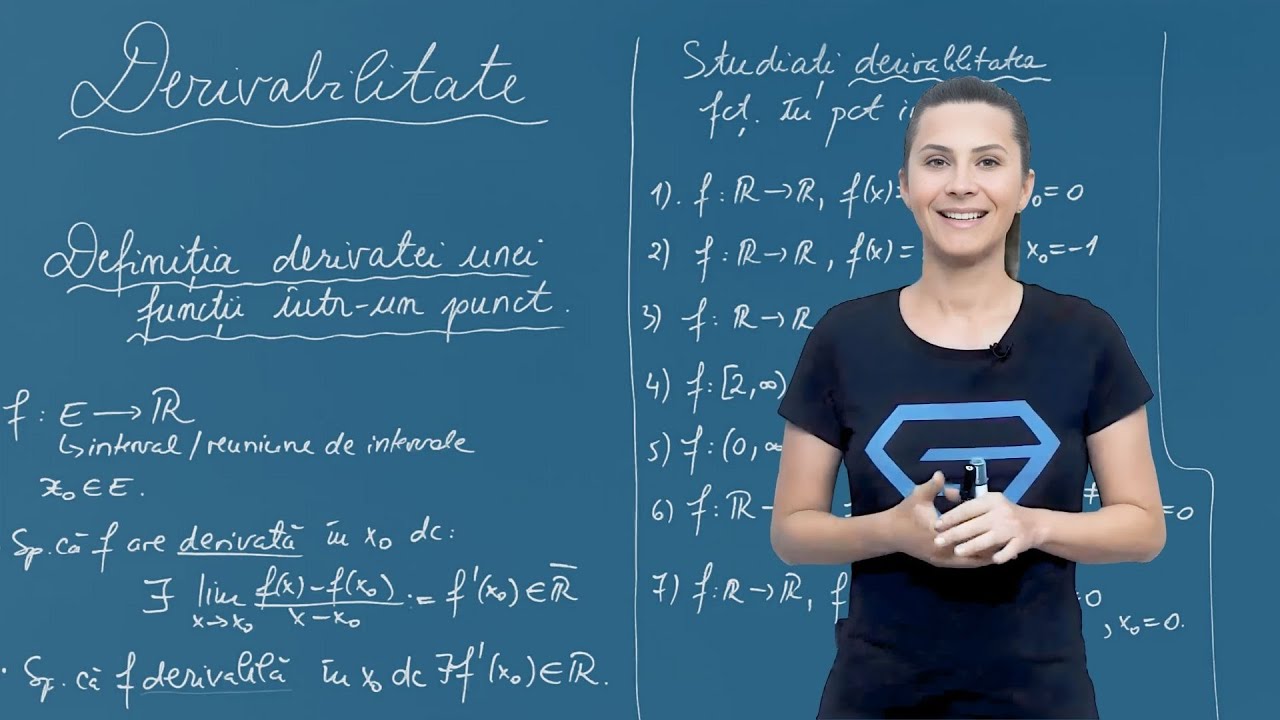 Derivabilitate
Definiția derivatei unei
funcții într-un punct.
f : E → ℝ
↳ interval / reuniune de intervale
x₀ ∈ E.
Sp. că f are derivată în x₀ dc:
∃ lim f(x)-f(x₀) / x-x₀ := f'(x₀) ∈ ℝ̄
x→x₀
Sp. că f derivabilă în x₀ dc ∃ f'(x₀) ∈ ℝ.
Studiați derivabilitatea
fcț. în pct
1). f : ℝ → ℝ, f(x)= x₀ = 0
2) f : ℝ → ℝ, f(x) = x₀ = -1
3) f : ℝ → ℝ
4) f : [2, ∞)
5) f : (0, ∞
6) f : ℝ - ≠ = 0
7) f : ℝ → ℝ, f 0
, x₀ = 0.